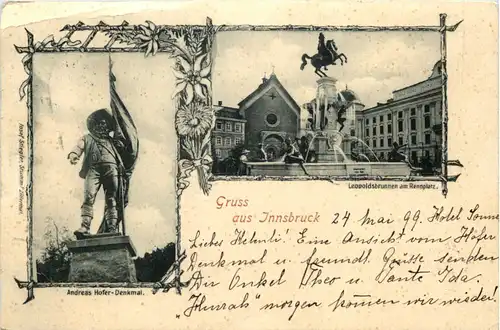 Josef Stiegler, Stumm/Zillertal.
Leopoldsbrunnen am Rennplatz.
Andreas Hofer-Denkmal.
Gruss
aus Innsbruck
24 Mai 99 Hotel Sonne
Liebes Helenli! Eine Ansicht vom Hofer
Denkmal u. freundl. Grüsse senden
Dir Onkel Theo u. Tante Ida.
"Hurrah" morgen kommen wir wieder!